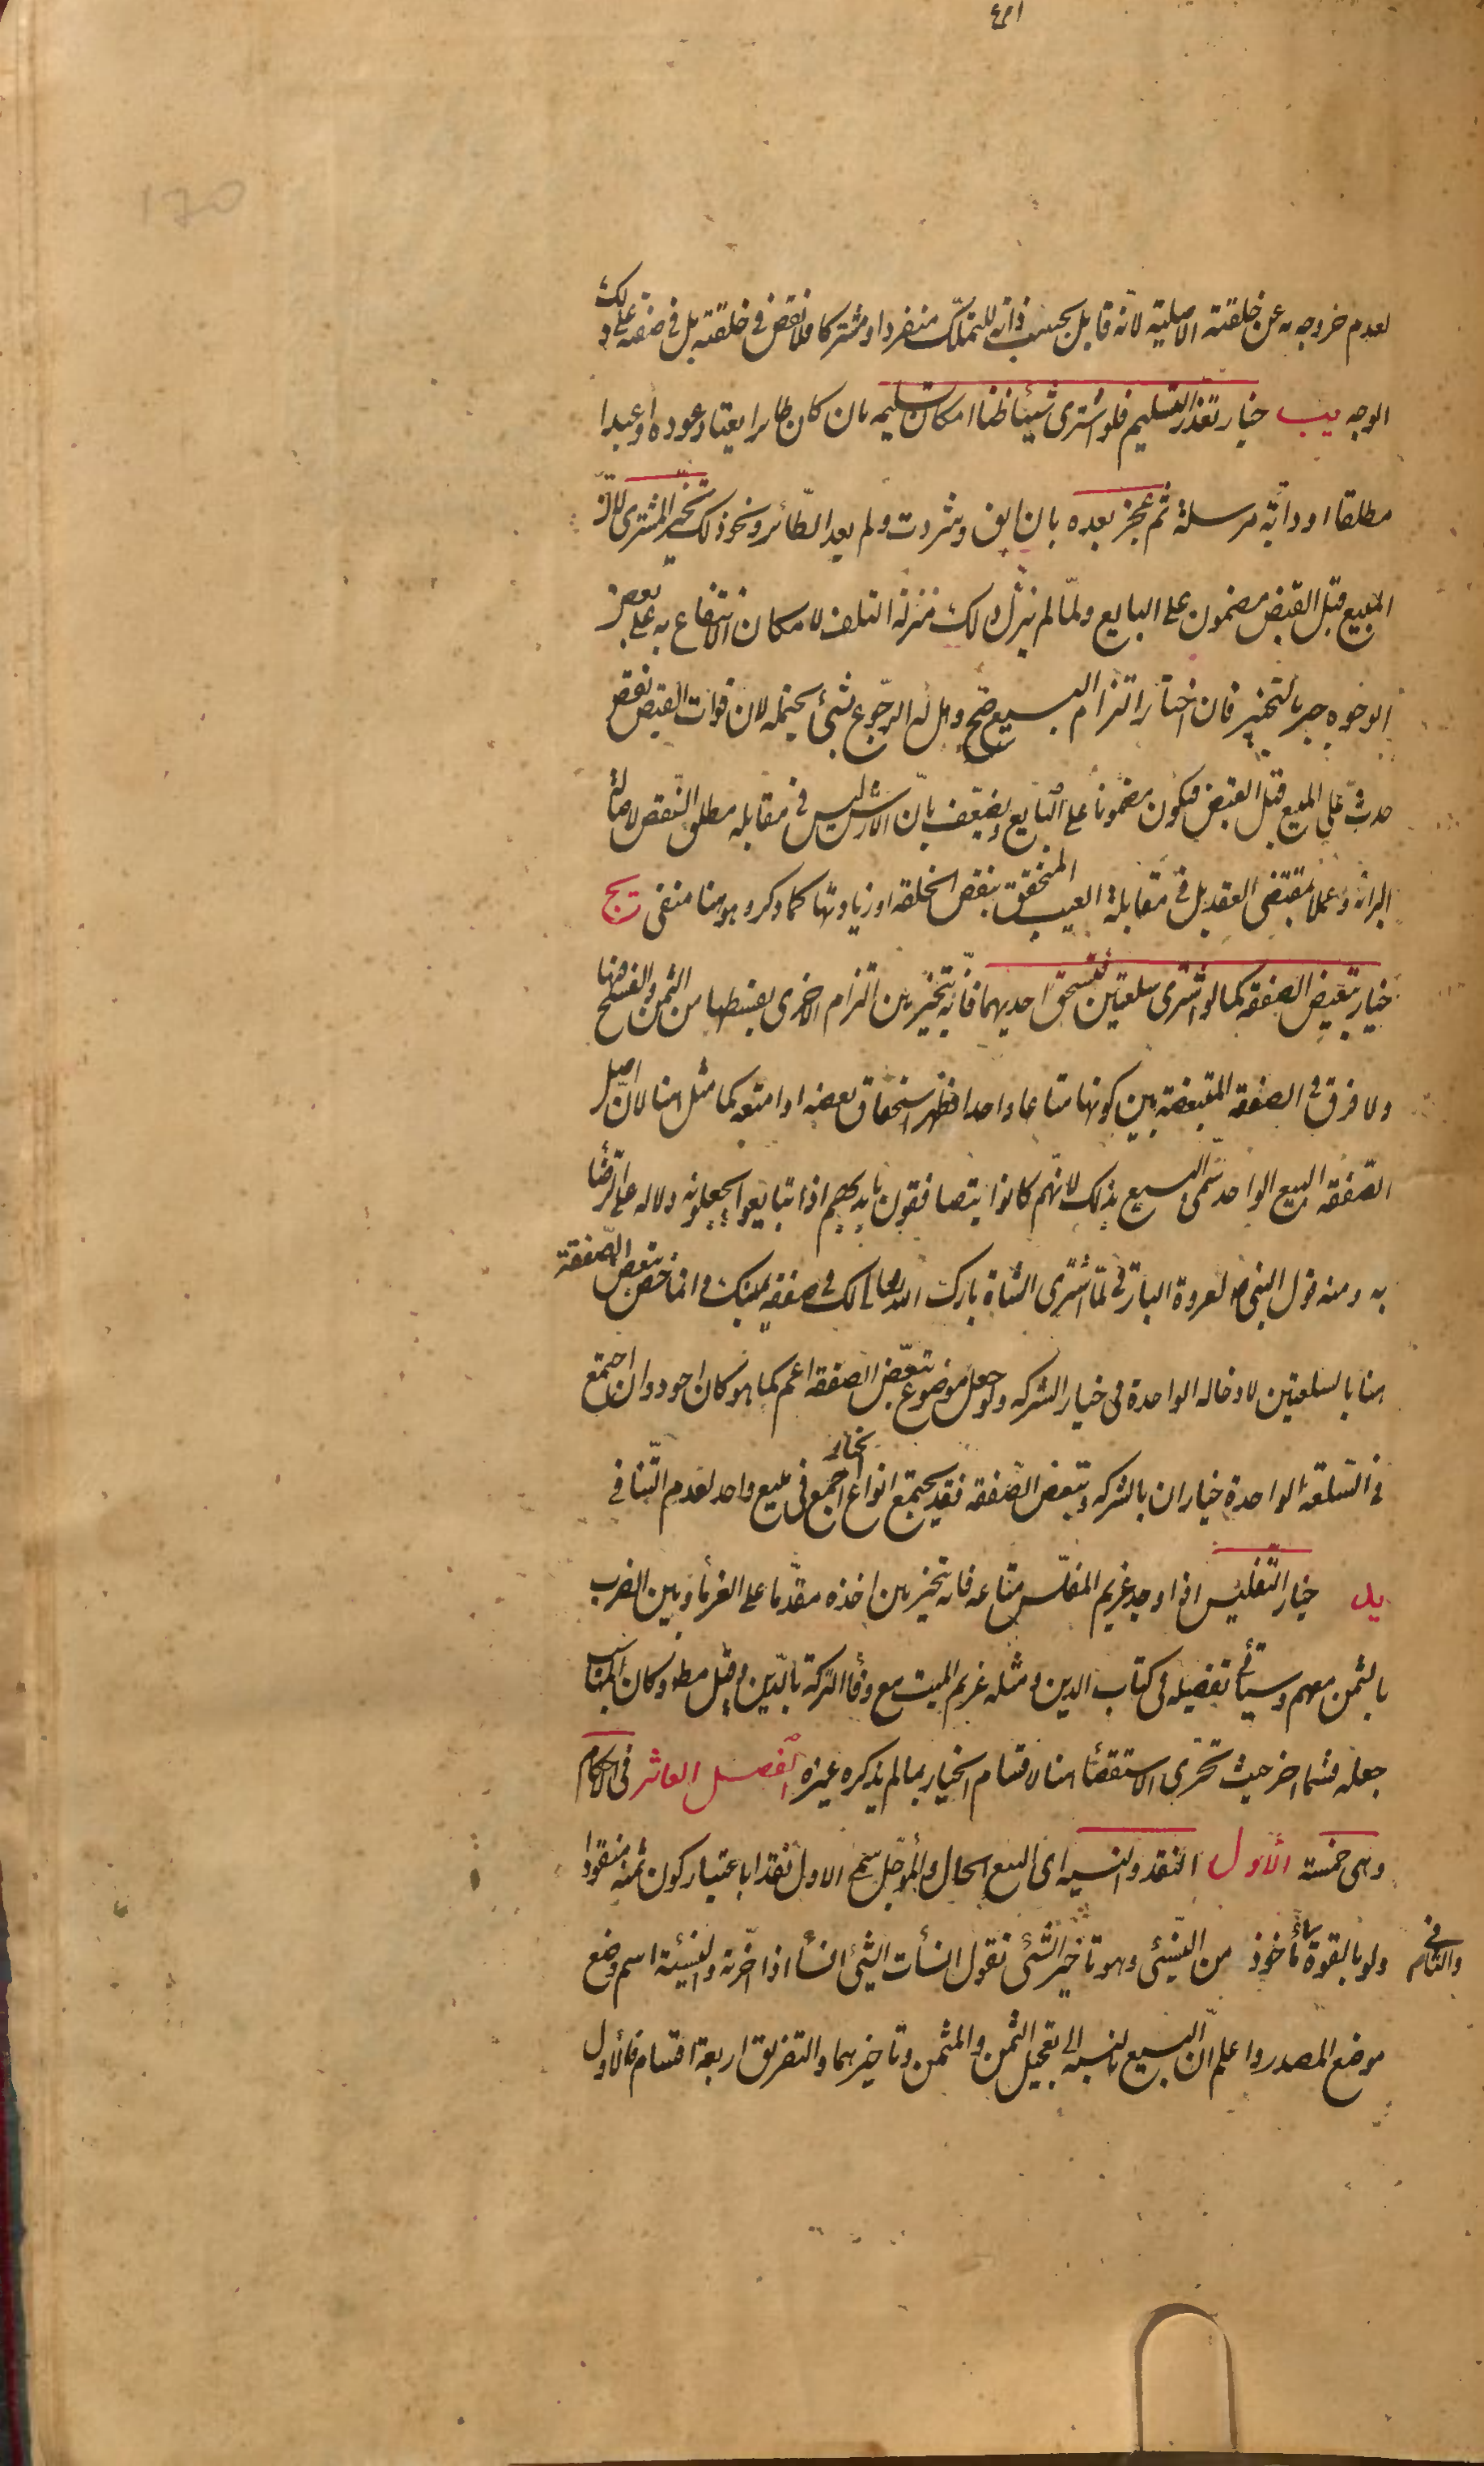 لعدم خروجه به عن خلقته الاصلية لانه قابل بحسب ذاته للتملك منفردا و مشتركا فلا نقص في خلقته بل في صفته على ذلك
الوجه يب خيار تعذر التسليم فلو اشترى شيئا ظنا امكان تسليمه بان كان طايرا يعتاد عوده او عبدا
مطلقا او دابة مرسلة ثم عجز بعده بان ابق و شردت و لم يعد الطائر و نحو ذلك تخير المشترى لان
المبيع قبل القبض مضمون على البايع و لما لم ينزل ذلك منزلة التلف لامكان الانتفاع به على بعض
الوجوه جبر بالتخيير فان اختار التزام البيع صح و هل له الرجوع بشئ يحتمله لان فوات القبض نقص
حدث على المبيع قبل القبض فيكون مضمونا على البايع و يضعف بان الارش ليس في مقابله مطلق النقص لاصالة
البرائة و عملا بمقتضى العقد بل في مقابلة العيب المتحقق بنقص الخلقة او زيادتها كما ذكر و هو هنا منفى يج
خيار تبعيض الصفقه كما لو اشترى سلعتين فتستحق احديهما فانه يتخير بين التزام الاخرى بقسطها من الثمن و الفسخ فيها
و لا فرق في الصفقه المتبعضة بين كونها متاعا واحدا فظهر استحقاق بعضه او امتعه كما مثل هنا لان اصل
الصفقه البيع الواحد سمى البيع بذلك لانهم كانوا يتصافقون بايديهم اذا تبايعوا يجعلونه دلاله على الرضا
به و منه قول النبي ص لعروة البارقي لما اشترى الشاة بارك الله تعالى لك في صفقه يمينك و انما خص تبعض الصفقة
هنا بالسلعتين لادخاله الواحدة في خيار الشركه و لو جعل موضوع تبعض الصفقه اعم كما هو كان اجود و ان اجتمع
في السلعة الواحدة خياران بالشركه و تبعض الصفقه فقد يجتمع انواع الخيار اجمع في مبيع واحد لعدم التنافي
يد خيار التفليس اذا وجد غريم المفلس متاعه فانه يتخير بين اخذه مقدما على الغرماء و بين الضرب
بالثمن معهم و سيأتي تفصيله في كتاب الدين و مثله غريم الميت مع وفاء التركة بالدين و قيل مطلقا و كان المناسب
جعله قسما اخر حيث تحرى الاستقصاء هنا لاقسام الخيار بما لم يذكره غيره الفصل العاشر في الاحكام
و هي خمسة الأول النقد و النسيه اى البيع الحال و المؤجل سمى الاول نقدا باعتبار كون ثمنه منقودا
ولو بالقوة و الثاني مأخوذ من النسئ و هو تأخير الشئ تقول انسأت الشئ انساء اذا اخرته و النسيئة اسم وضع
موضع المصدر و اعلم ان البيع بالنسبه الى تعجيل الثمن و المثمن و تاخيرهما و التفريق اربعة اقسام فالاول